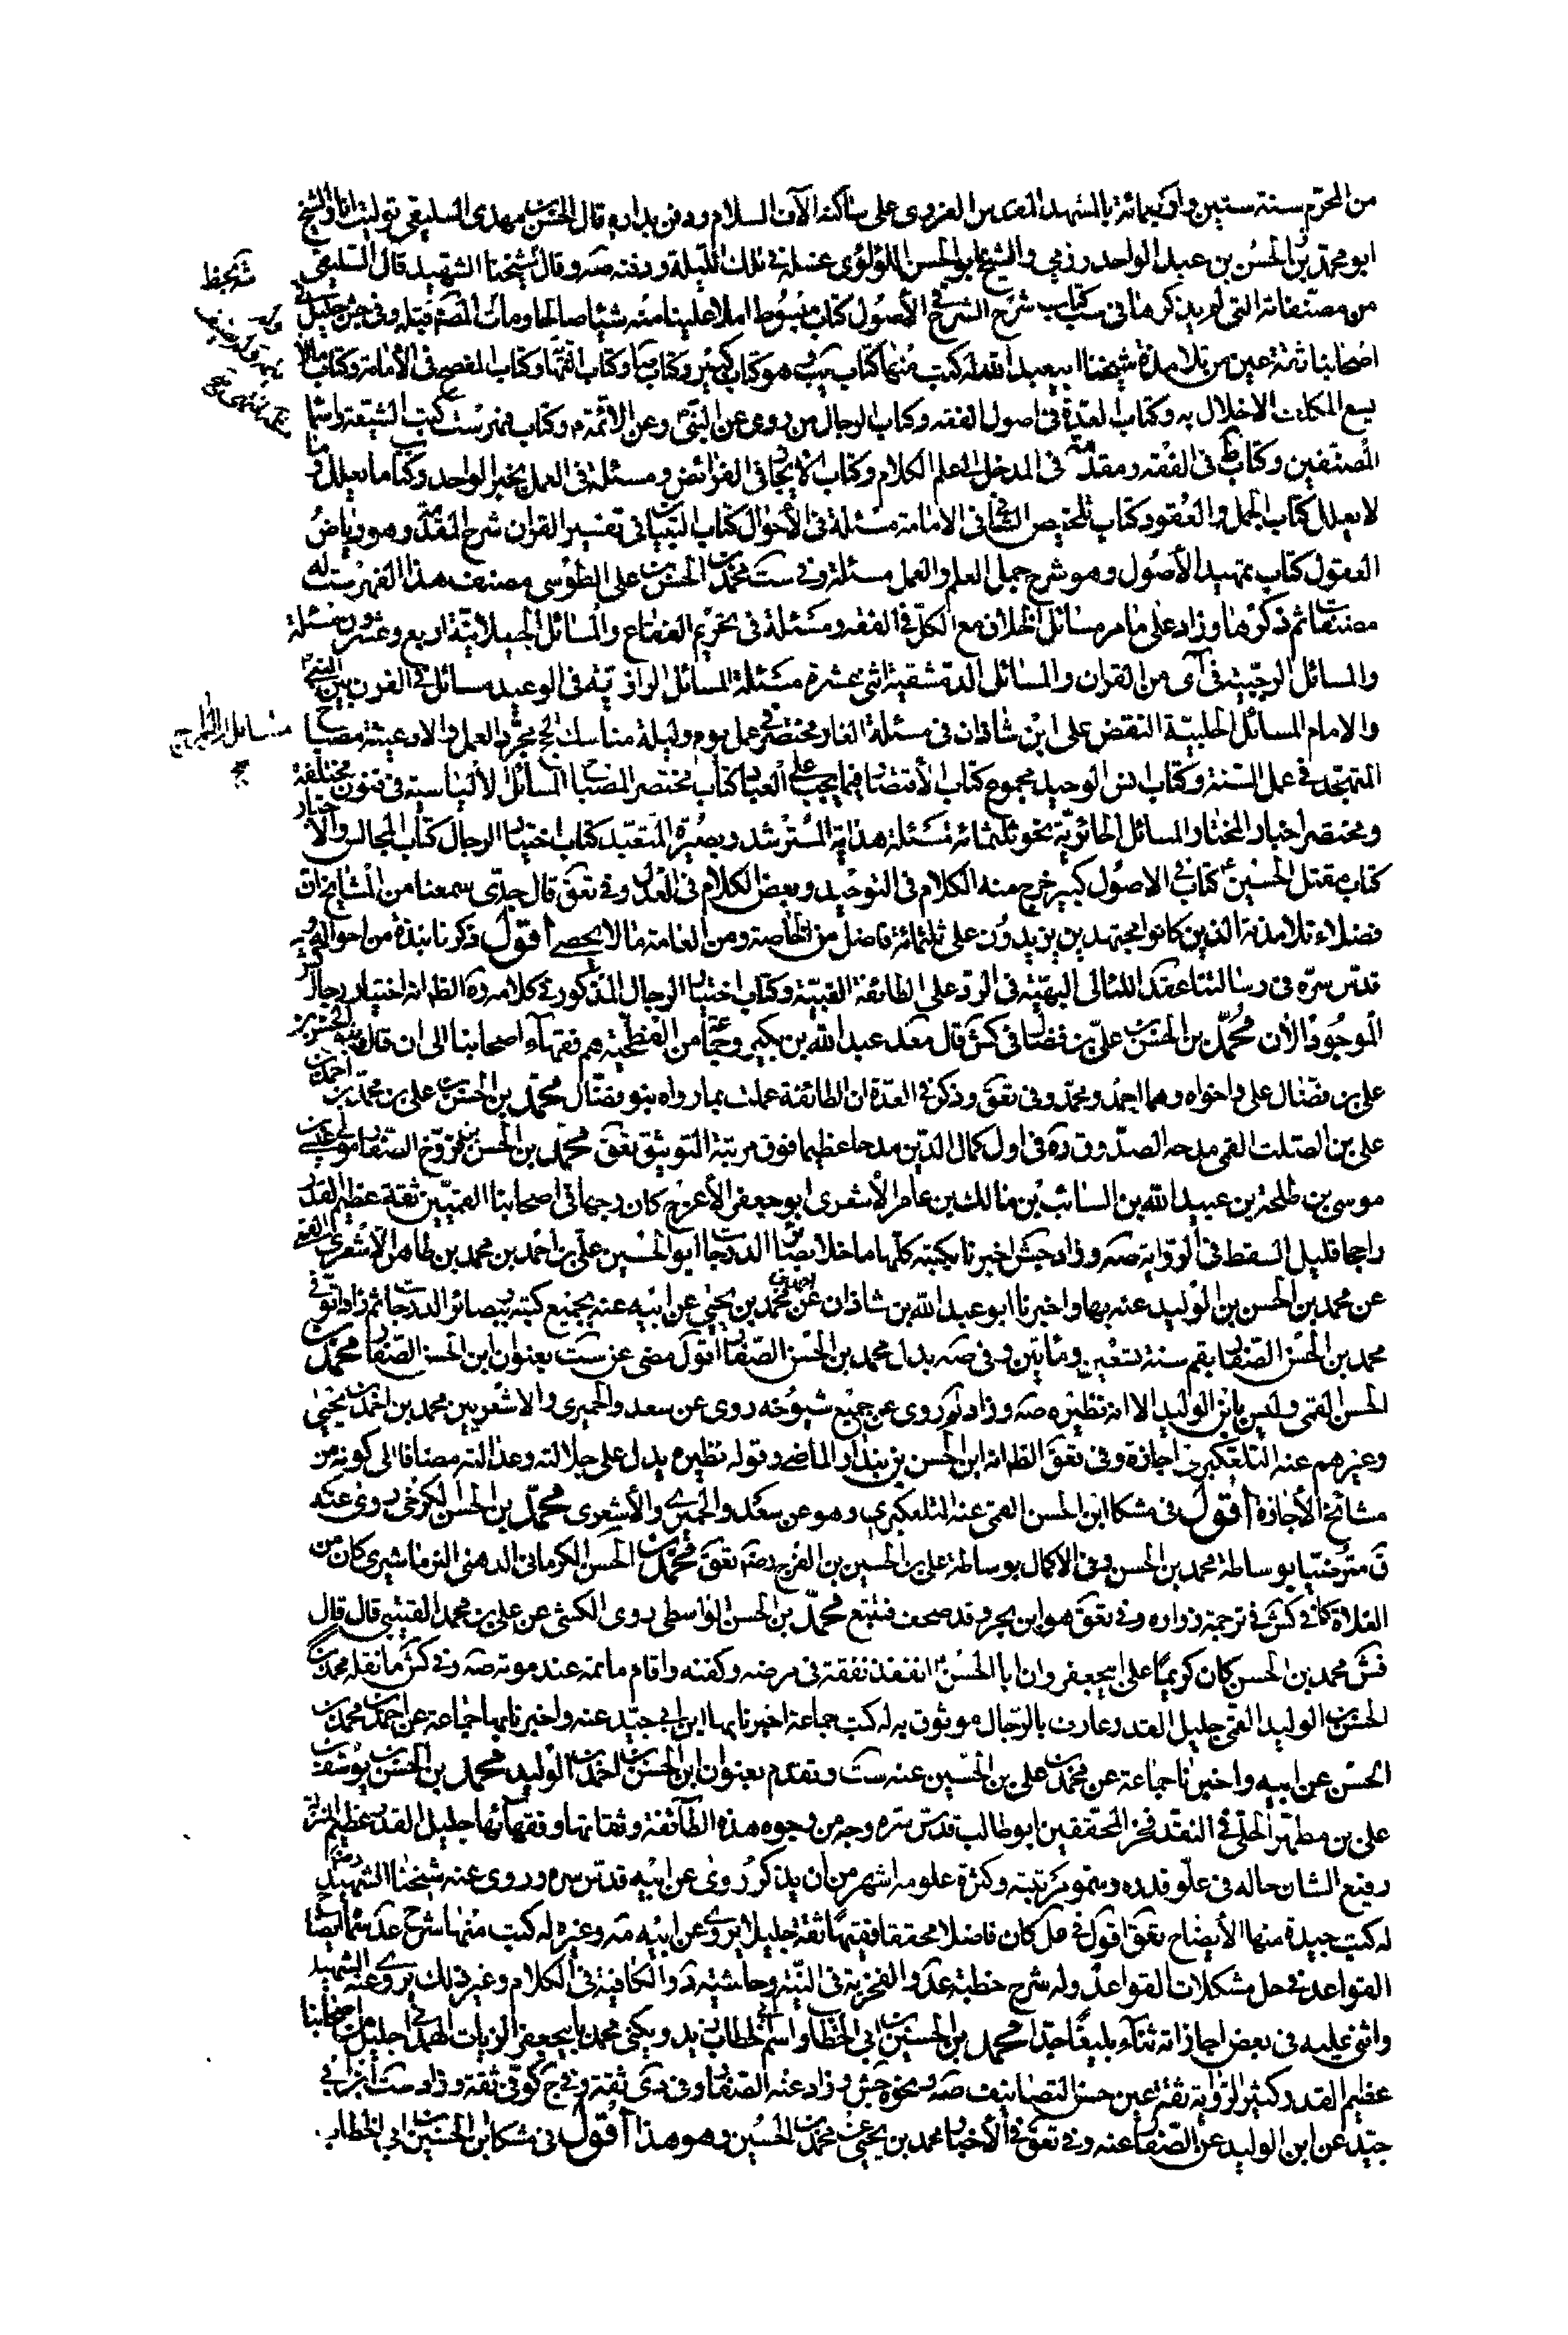 من المحرم سنة ستين واربعمائة بالمشهد المقدس الغروى على ساكنه الآف السلام ودفن بداره قال الحسن بن مهدى السليقى توليت انا والشيخ
ابو محمد بن الحسن بن عبد الواحد رزبى والشيخ ابو الحسن اللؤلؤى غسله فى تلك الليلة ودفنه صه وقال شيخنا الشهيد قال السليقى
من مصنفاته التى لم يذكرها فى ست كتاب شرح الشرح فى الأصول كتاب مبسوط املا علينا منه شيئا صالحا ومات المصنف قبله وفى جش جليل فى
اصحابنا ثقة عين من تلامذة شيخنا ابيعبد الله له كتب منها كتاب يب وهو كتاب كبير وكتاب صا وكتاب النهاية وكتاب المفصح فى الأمامة وكتاب مالا
يسع المكلف الاخلال به وكتاب العدة فى اصول الفقه وكتاب الرجال من روى عن النبى وعن الائمة وكتاب فهرست كتب الشيعة واسماء
المصنفين وكتاب ط فى الفقه ومقدمة فى المدخل الى علم الكلام وكتاب الايجاز فى الفرائض ومسئلة فى العمل بخبر الواحد وكتاب ما يعلل وما
لا يعلل كتاب الجمل والعقود كتاب تلخيص الشافى فى الامامة مسئلة فى الأحوال كتاب التبيان فى تفسير القران شرح المقدمة وهو رياض
العقول كتاب تمهيد الأصول وهو شرح جمل العلم والعمل مسئلة وفى ست محمد بن الحسن بن على الطوسى مصنف هذا الفهرست له
مصنفات ثم ذكرها وزاد على ما مر مسائل الخلاف مع الكل فى الفقه ومسئلة فى تحريم الفقاع والمسائل الجنبلائية اربع وعشرون مسئلة
والمسائل الرجبية فى آى من القران والمسائل الدمشقية اثنى عشرة مسئلة المسائل الرازية فى الوعيد مسائل فى الفرق بين النبى
والامام المسائل الحلبية النقض على ابن شاذان فى مسئلة الغار مختصر فى عمل يوم وليلة مناسك الحج مجرد العمل والادعية مصباح
المتهجد فى عمل السنة وكتاب انس الوحيد مجموع كتاب الأقتصاد فيما يجب على العباد كتاب مختصر المصباح المسائل الألياسية فى فنون مختلفة
ومختصر اخبار المختار المسائل الحائرية نحو ثلثمائة مسئلة هداية المسترشد وبصيرة المتعبد كتاب اختيار الرجال كتاب المجالس والأخبار
كتاب مقتل الحسين كتاب فى الاصول كبير خرج منه الكلام فى التوحيد وبعض الكلام فى العدل وفى تعق قال جدى سمعنا من المشايخ ان
فضلاء تلامذته الذين كانوا مجتهدين يزيدون على ثلثمائة فاضل من الخاصة ومن العامة مالا يحصى أقول ذكرنا نبذة من احواله وكتبه
قدس سره فى رسالتنا عقد اللئالى البهية فى الرد على الطائفة الغبية وكتاب اختيار الرجال المذكور فى كلامه ره الظ انه اختيار رجال كش
الموجود الأن محمد بن الحسن بن على بن فضال فى كش قال معد عبد الله بن بكير وجماعة من الفطحية هم فقهاء اصحابنا الى ان قال وبنو الحسن بن
على بن فضال على واخواه وهما احمد ومحمد وفى تعق وذكر فى العدة ان الطائفة عملت بما رواه بنو فضال محمد بن الحسن بن على بن محمد بن احمد بن
على بن الصلت القمى مدحه الصدوق ره فى اول كمال الدين مدحا عظيما فوق مرتبة التوثيق تعق محمد بن الحسن بن فروخ الصفار مولى عيسى بن
موسى بن طلحة بن عبيد الله بن السائب بن مالك بن عامر الأشعرى ابو جعفر الأعرج كان وجها فى اصحابنا القميين ثقة عظيم القدر
راجحا قليل السقط فى الرواية صه وزاد جش اخبرنا بكتبه كلها ما خلا بصائر الدرجات ابو الحسين على بن احمد بن محمد بن طاهر الأشعرى القمى
عن محمد بن الحسن بن الوليد عنه بها واخبرنا ابو عبد الله بن شاذان عن احمد بن محمد بن يحيى عن ابيه عنه بجميع كتبه ببصائر الدرجات ثم زاد توفى
محمد بن الحسن الصفار بقم سنة تسعين ومأتين وفى صه بدل محمد بن الحسن الصفار أقول مضى عن ست بعنوان ابن الحسن الصفار محمد بن
الحسن القمى وليس بابن الوليد الا انه نظيره صه وزاد لم روى عن جميع شيوخه روى عن سعد والحميرى والاشعريين محمد بن احمد بن يحيى
وغيرهم عنه التلعكبرى اجازة وفى تعق الظ انه ابن الحسن بن بندار الماضى وقوله نظيره يدل على جلالته وعدالته مضافا الى كونه من
مشائخ الأجازة أقول فى مشكا ابن الحسن القمى عنه التلعكبرى وهو عن سعد والحميرى والأشعرى محمد بن الحسن الكرخى روى عنه
ق مترضيا بوساطة محمد بن الحسن وفى الاكمال بوساطة على بن الحسين بن الفرج رضه تعق محمد بن الحسن الكرمانى الدهنى النرماشيرى كان من
الغلاة كما فى كش فى ترجمة زواره وفى تعق هو ابن بحر وقد صحف فتتبع محمد بن الحسن الواسطى روى الكشى عن على بن محمد القتيبى قال قال
فش محمد بن الحسن كان كريما على ابيجعفر وان ابا الحسن انفذ نفقة فى مرضه وكفنه واقام ماتمه عند موته صه وفى كش ما نقله محمد بن
الحسن بن الوليد القمى جليل القدر عارف بالرجال موثوق به له كتب جماعة اخبرنا بها ابن ابى جيد عنه واخبرنا بها جماعة عن احمد بن محمد بن
الحسن عن ابيه واخبرنا جماعة عن محمد بن على بن الحسين عنه ست وتقدم بعنوان ابن الحسن بن احمد بن الوليد محمد بن الحسن بن يوسف بن
على بن مطهر الحلى فى النقد فخر المحققين ابو طالب قدس سره وجه من وجوه هذه الطائفة وثقاتها وفقهائها جليل القدر عظيم المنزلة
رفيع الشان حاله فى علو قدره وسمو مرتبته وكثرة علومه اشهر من ان يذكر روى عن ابيه قدس سره وروى عنه شيخنا الشهيد رضه
له كتب جيدة منها الأيضاح تعق اقول فى مل كان فاضلا محققا فقيها ثقة جليلا يروى عن ابيه مه وغيره له كتب منها شرح عد سماه ايضاح
القواعد فى حل مشكلات القواعد وله شرح خطبة عد والفخرية فى النية وحاشية د والكافية فى الكلام وغير ذلك يروى عنه الشهيد
واثنى عليه فى بعض اجازاته ثناء بليغا جدا محمد بن الحسين بن ابى الخطاب واسم ابى الخطاب زيد ويكنى محمد بابيجعفر الزيات الهمدانى جليل من اصحابنا
عظيم القدر كثير الرواية ثقة عين حسن التصانيف صه ونحوه جش وزاد عنه الصفار وفى دى ثقة وفى ج كوفى ثقة وزاد ست ابن ابى
جيد عن ابن الوليد عن الصفار عنه وفى تعق فى الأخبار محمد بن يحيى عن محمد بن الحسين وهو هذا أقول فى مشكا ابن الحسين بن ابى الخطاب